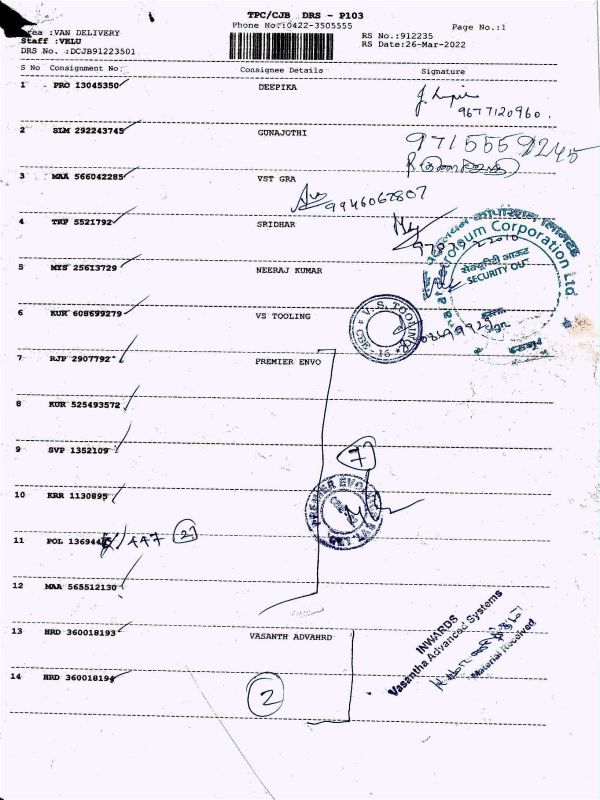 TPC/CJB DRS - P103
Phone No:.0422-3505555
Page No.:1
Area :VAN DELIVERY
Staff :VELU
DRS No. :DCJB91223501
RS No.:912235
RS Date:26-Mar-2022
S No Consignment No: Consignee Details Signature
1 PRO 13045350 DEEPIKA
9677120960.
2 SLM 292243745 GUNAJOTHI
9715559245
3 MAA 566042285 VST GRA
9946062807
4 TRP 5521792 SRIDHAR
5 MYS 25613729 NEERAJ KUMAR
Corporation Ltd
सेक्यूरिटी आऊट
SECURITY OUT
6 KUR 608699279 VS TOOLING
V.S. TOOLING
7 RJP 2907792 PREMIER ENVO
8 KUR 525493572
9 SVP 1352109
7
10 KRR 1130895
11 POL 13694 447 2
12 MAA 565512130
13 HRD 360018193 VASANTH ADVAHRD
INWARDS
Vasantha Advanced Systems
Material Received
14 HRD 360018194
2